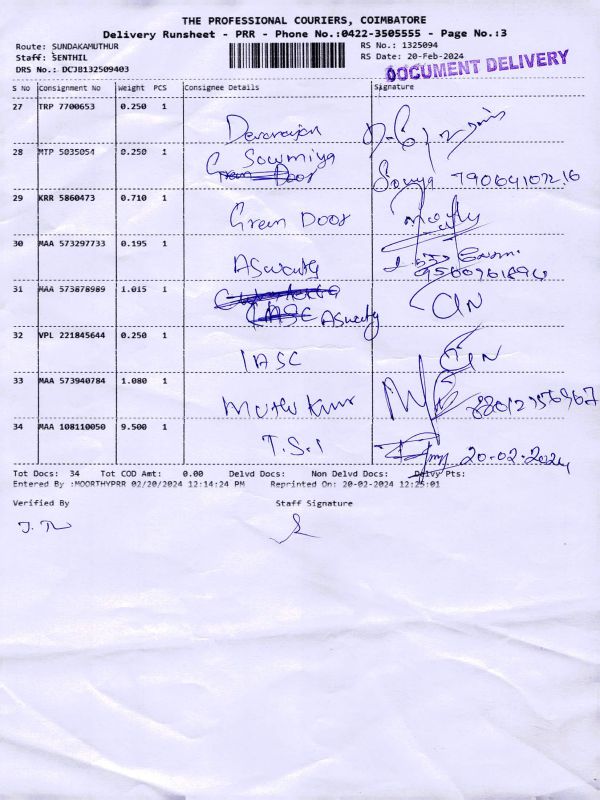 THE PROFESSIONAL COURIERS, COIMBATORE
Delivery Runsheet - PRR - Phone No.:0422-3505555 - Page No.:3
Route: SUNDAKAMUTHUR RS No.: 1325094
Staff: SENTHIL RS Date: 20-Feb-2024
DRS No.: DCJB132509403 DOCUMENT DELIVERY
S No Consignment No Weight PCS Consignee Details Signature
27 TRP 7700653 0.250 1
Devarajan
28 MTP 5035054 0.250 1 Sowmiya
Green Door Sowya
29 KRR 5860473 0.710 1
Green Door
30 MAA 573297733 0.195 1
Aswathy
31 MAA 573878989 1.015 1
IASC Aswathy
32 VPL 221845644 0.250 1
IASC
33 MAA 573940784 1.080 1
Muthu Kumar
34 MAA 108110050 9.500 1
T.S.I 20-02-2024
Tot Docs: 34 Tot COD Amt: 0.00 Delvd Docs: Non Delvd Docs: Delvy Pts:
Entered By :MOORTHYPRR 02/20/2024 12:14:24 PM Reprinted On: 20-02-2024 12:25:01
Verified By Staff Signature